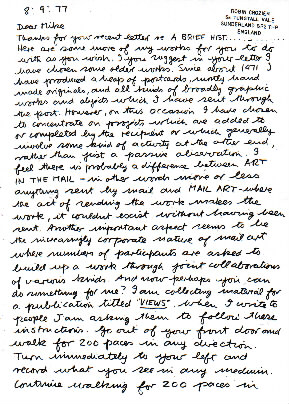 8.9.77
ROBIN CROZIER
5A TUNSTALL VALE
SUNDERLAND
ENGLAND
Dear Mike
Thanks for your recent letter re A BRIEF HIST
Here are some more of my works for you to do
with as you wish. As you suggest in your letter I
have chosen some older works. Since about 1971 I
have produced a heap of postcards, mostly hand
made originals, and all kinds of broadly graphic
works and objects which I have sent through
the post. However, on this occasion I have chosen
to concentrate on projects which are added to
or completed by the recipient or which generally
involve some kind of activity at the other end,
rather than just a passive observation. I
feel there is probably a difference between ART
IN THE MAIL - in other words more or less
anything sent by mail and MAIL ART - where
the act of sending the work makes the
work, it couldn't exist without having been
sent. Another important aspect seems to be
the increasingly corporate nature of mail art
where numbers of participants are asked to
build up a work through joint collaborations
of various kinds. And now perhaps you can
do something for me? I am collecting material for
a publication titled "VIEWS". When I write to
people I am asking them to follow these
instructions. Go out of your front door and
walk for 200 paces in any direction.
Turn immediately to your left and
record what you see in any medium.
Continue walking for 200 paces in